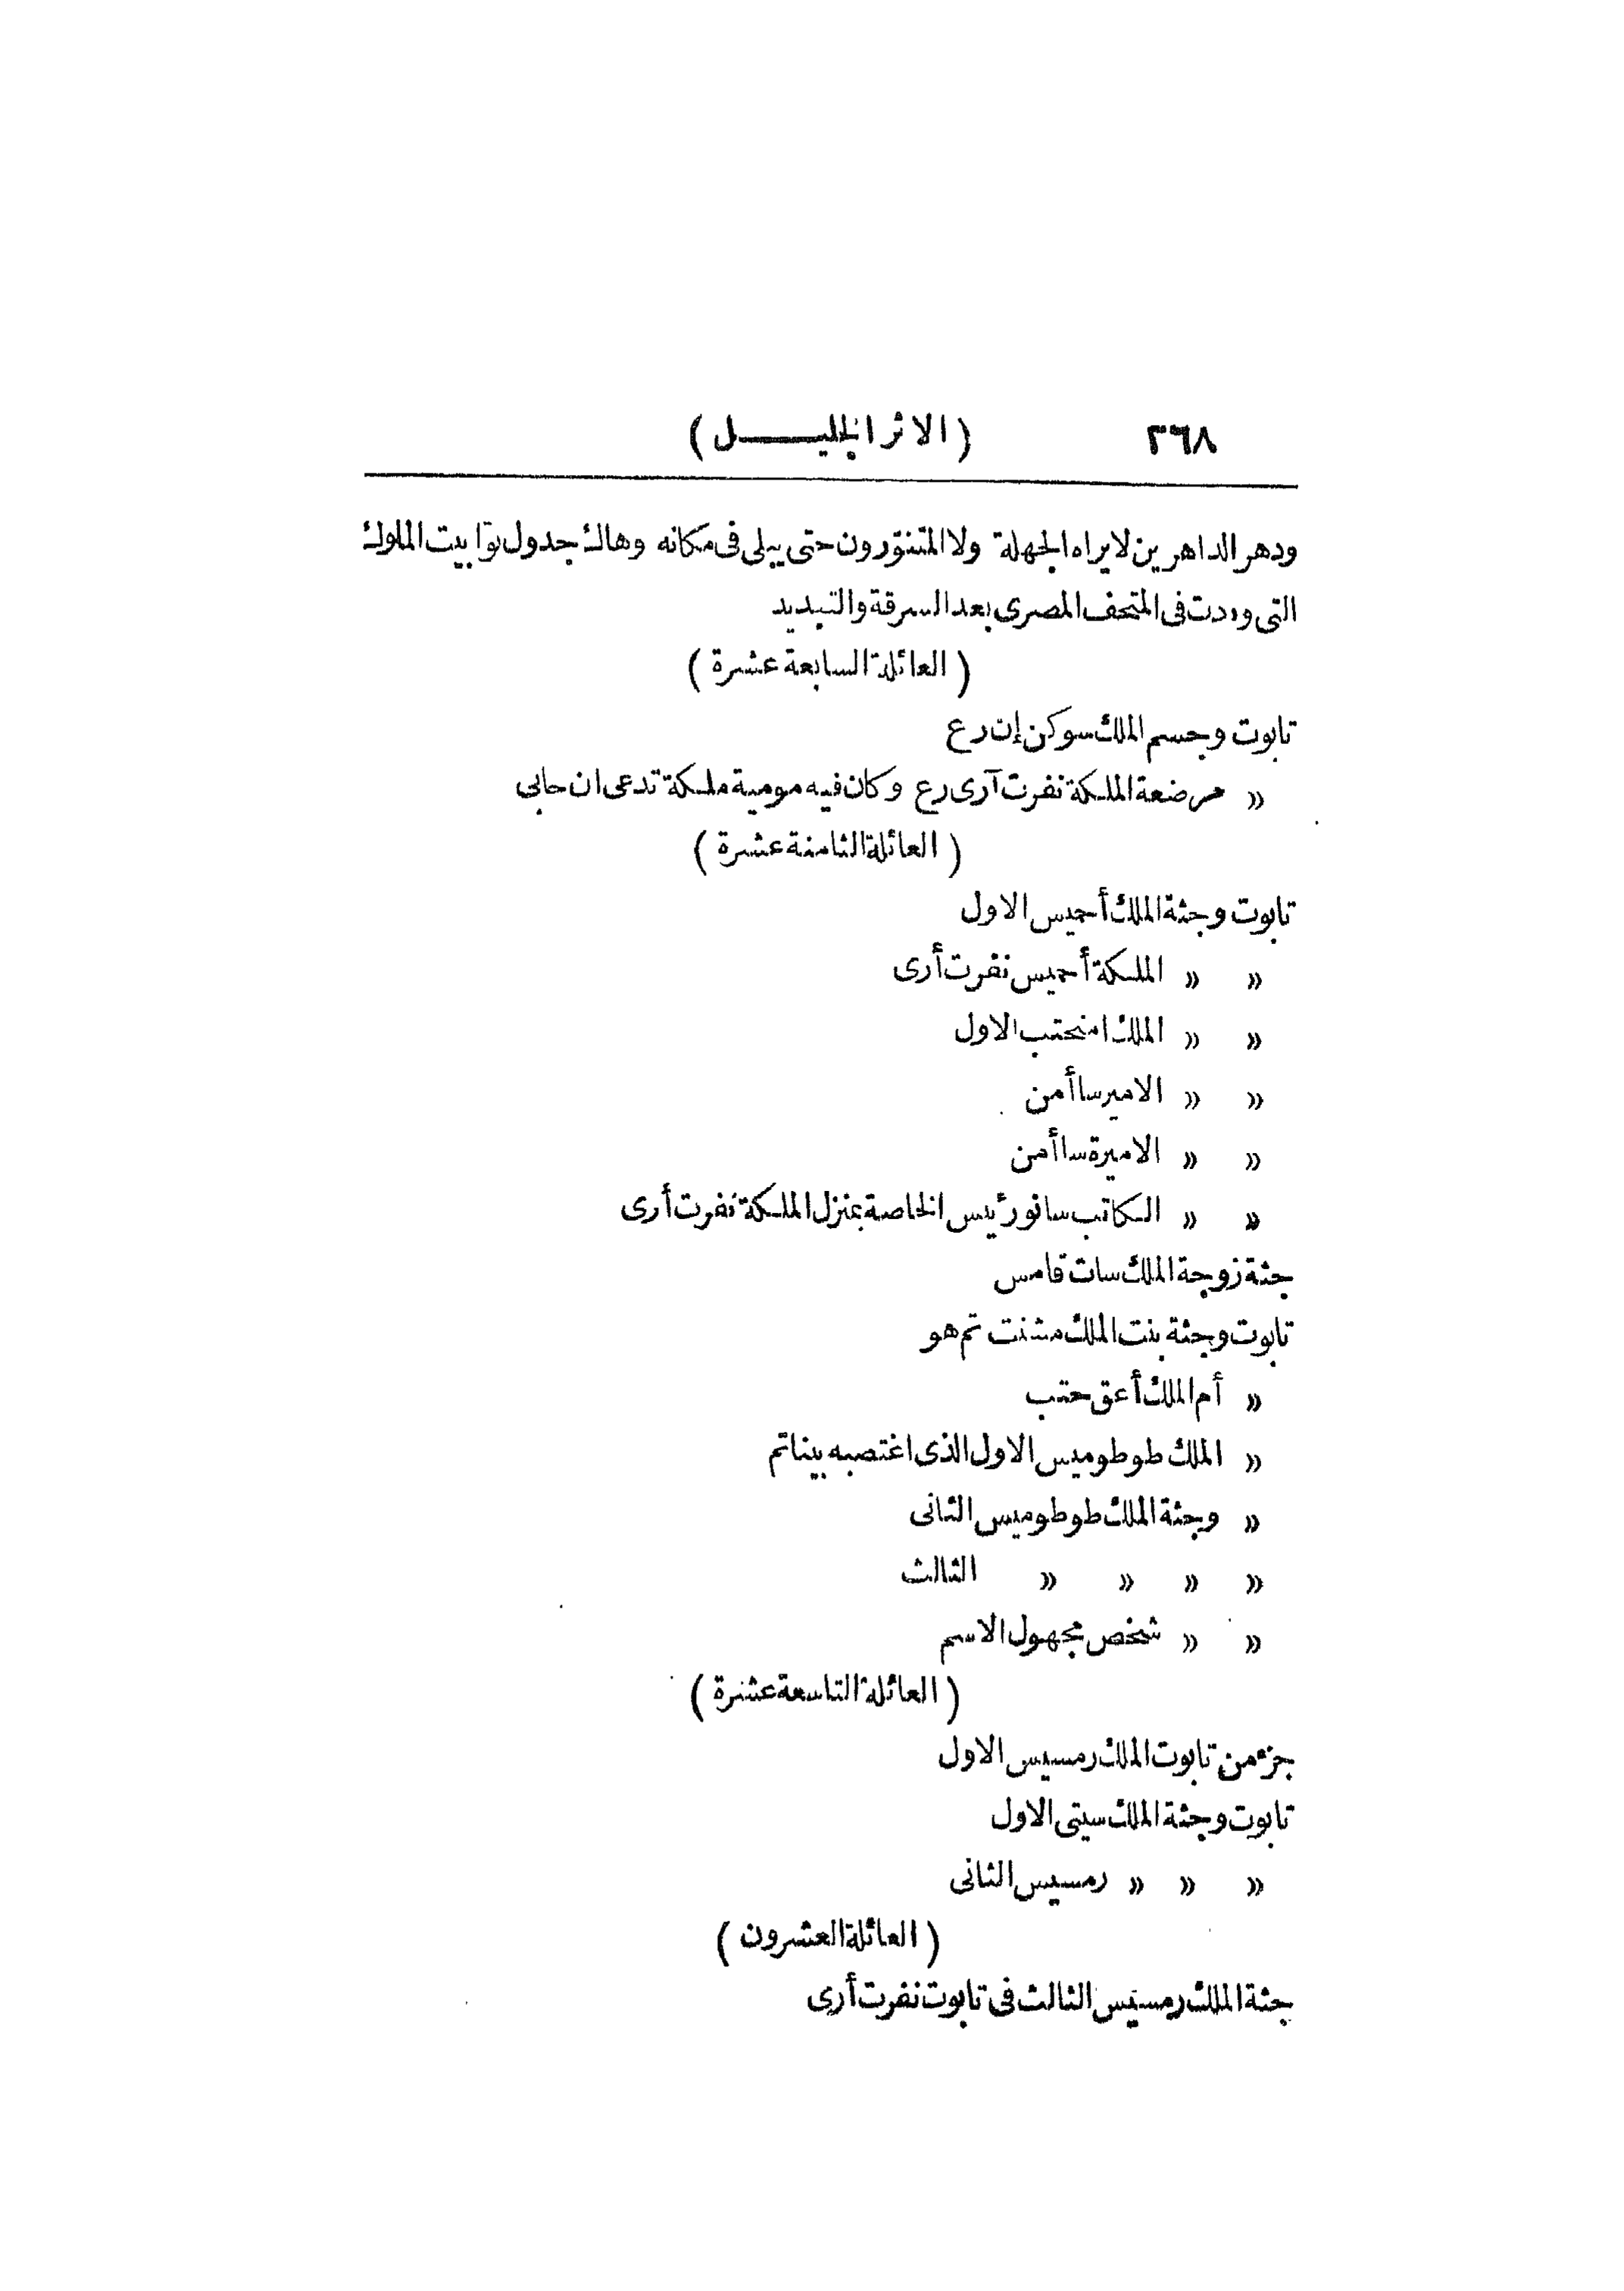 ٣٦٨ (الاثر الجليـــــل)
ودهر الداهرين لا يراه الجهلة ولا المتنوّرون حتى يبلى فى مكانه وهاك جدول توابيت الملوك
التى وردت فى المتحف المصرى بعد السرقة والتبديد
(العائلة السابعة عشرة)
تابوت وجسم الملك سوكن إن رع
» مرضعة الملكة نفرت آرى رع وكان فيه مومية ملكة تدعى ان حابى
(العائلة الثامنة عشرة)
تابوت وجثة الملك أحميس الاول
» » الملكة أحميس نفرت أرى
» » الملك امنحتب الاول
» » الامير سا أمن
» » الاميرة سا أمن
» » الكاتب سانو رئيس الخاصة بمنزل الملكة نفرت أرى
جثة زوجة الملك سات قامس
تابوت وجثة بنت الملك مشنت تم هو
» أم الملك أعق حتب
» الملك طوطوميس الاول الذى اغتصبه بيناتم
» وجثة الملك طوطوميس الثانى
» » » » الثالث
» » شخص مجهول الاسم
(العائلة التاسعة عشرة)
جزء من تابوت الملك رمسيس الاول
تابوت وجثة الملك سيتى الاول
» » » رمسيس الثانى
(العائلة العشرون)
جثة الملك رمسيس الثالث فى تابوت نفرت أرى